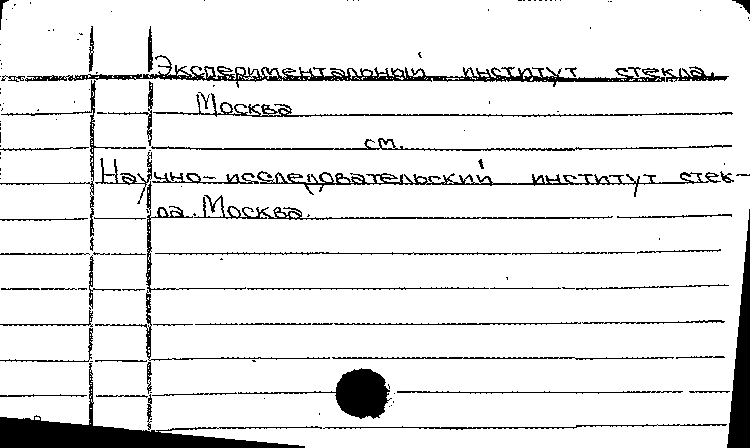 Экспериментальный институт стекла.
Москва
см.
Научно-исследовательский институт стек-
ла. Москва.